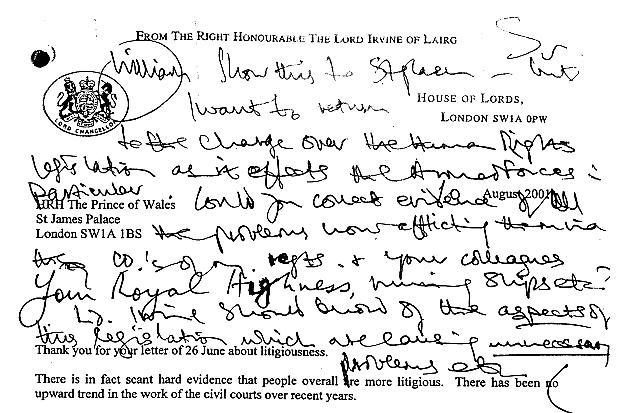 FROM THE RIGHT HONOURABLE THE LORD IRVINE OF LAIRG
William Show this to — but
I want to return
HOUSE OF LORDS,
LONDON SW1A 0PW
LORD CHANCELLOR
to the charge over the Human Rights
legislation as it affects the Armed Forces in
particular. Could you collect evidence of all
August 2001
HRH The Prince of Wales
St James Palace
London SW1A 1BS
the problems now afflicting them via
the CO.'s of my regts. & your colleagues
Your Royal Highness,
running ships etc?
Ld. Irvine should know of the aspects of
this legislation which are causing unnecessary
problems etc
Thank you for your letter of 26 June about litigiousness.
There is in fact scant hard evidence that people overall are more litigious. There has been no
upward trend in the work of the civil courts over recent years.